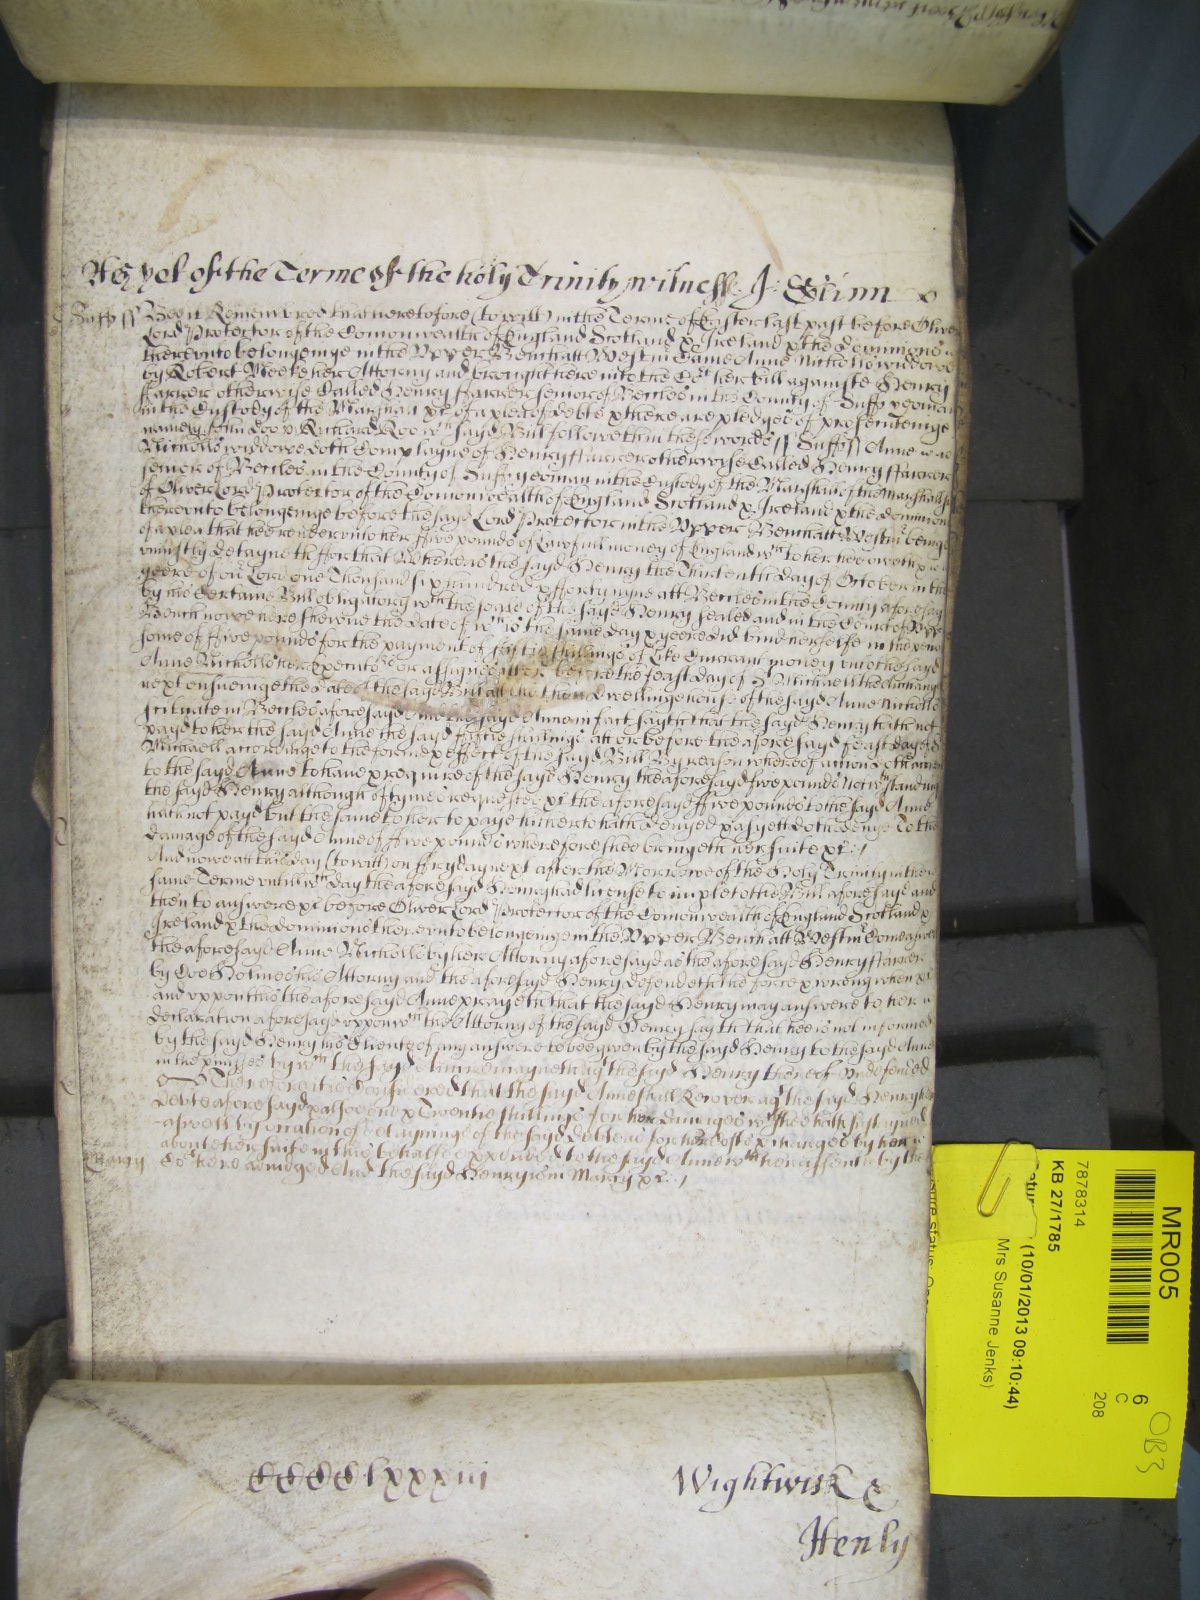 As yet of the Terme of the holy Trinity witness J: Glinn
Suff ss Bee it Remembred that heretofore (to witt) in the Terme of Easter last past before Oliver
Lord Protector of the Comonwealth of England Scotland & Ireland & the dominions
therevnto belongeinge in the Vpper Bench att Westm Came Anne Nicholls widdowe
by Robert Meeke her Attorny and brought here into the Co:rt her bill againste Henry
ffarrer otherwise Called Henry ffarrer senior of Beccles in the County of Suff yeoman
in the Custody of the Marshall &c of a plea of debte & there are pledges of prosecuteinge
namely John Doo & Richard Roo w:ch sayd Bill followeth in these words ss Suff ss Anne
Nicholls widdowe doth Complayne of Henry ffarrer otherwise Called Henry ffarrer
senior of Beccles in the County of Suff yeoman in the Custody of the Marshall of the Marshalsy
of Oliver Lord Protector of the Comonwealth of England Scotland & Ireland & the dominions
therevnto belongeinge before the sayd Lord Protector in the Vpper Bench att Westm beinge
of a plea that hee render vnto her ffive pounds of Lawfull money of England w:ch to her hee oweth &
vniustly detayneth ffor that Whereas the sayd Henry the Thirteenth day of October in the
yeere of our Lord one Thousand six hundred & fforty nyne att Beccles in the County aforesayd
by his Certaine Bill obligatory w:th the seale of the sayd Henry sealed and in the Court of
Bench nowe here shewne the date of w:ch is the same day & yeere did bind himselfe in the
some of ffive pounds for the payment of fifty shillings of like Currant money vnto the sayd
Anne Nicholls her executo:rs or assignes att or before the feast day of S:t Michaell the Archangell
next ensueinge the date of the sayd Bill att the then dwellinge house of the sayd Anne Nicholls
scituate in Beccles aforesayd And the sayd Anne in fact sayth that the sayd Henry hath not
payd to her the sayd Anne the sayd fiftie shillings att or before the aforesayd feast day of S:t
Michaell accordinge to the forme & effect of the sayd Bill By reason whereof action
to the sayd Anne to have & require of the sayd Henry the aforesayd ffive pounds Notw:thstandinge
the sayd Henry although oftymes requested &c the aforesayd ffive pounds to the sayd Anne
hath not payd but the same to her to pay hitherto hath denyed & as yett doth denye To the
damage of the sayd Anne of ffive pounds wherefore shee bringeth her suite &c:/
And nowe att this day (to witt) on ffryday next after the Morrowe of the Holy Trinity in the
same Terme vntill w:ch day the aforesayd Henry had license to imparle to the Bill aforesayd and
then to answere &c before Oliver Lord Protector of the Comonwealth of England Scotland &
Ireland & the dominions therevnto belongeinge in the Vpper Bench att Westm Come aswell
the aforesayd Anne Nicholls by her Attorny aforesayd as the aforesayd Henry ffarrer
by Coe Holmes his Attorny and the aforesayd Henry defendeth the force & wrong when &c
and vppon this the aforesayd Anne prayeth that the sayd Henry may answere to her
declaration aforesayd vppon w:ch the Attorny of the sayd Henry sayth that hee is not informed
by the sayd Henry his Cliente of any answere to bee given by the sayd Henry to the sayd Anne
in the p:rmisses by w:ch the sayd Anne remayneth ag:t the sayd Henry thereof vndefended
Therefore it is Considered that the sayd Anne shall Recover ag:t the sayd Henry her
debte aforesayd & alsoe one & Twentie shillings for her damages w:ch shee hath susteyned
aswell by occation of detayninge of the sayd debte as for her costs & charges by her
about her suite in this behalfe expended to the sayd Anne w:th her assent by the
Marcy Co:rt here adiudged And the sayd Henry is in Marcy &c:/
CCCClxxxiii
Wightwick &
Henly
MR005
7878314
KB 27/1785
(10/01/2013 09:10:44)
Mrs Susanne Jenks)
6
C
208
OB3